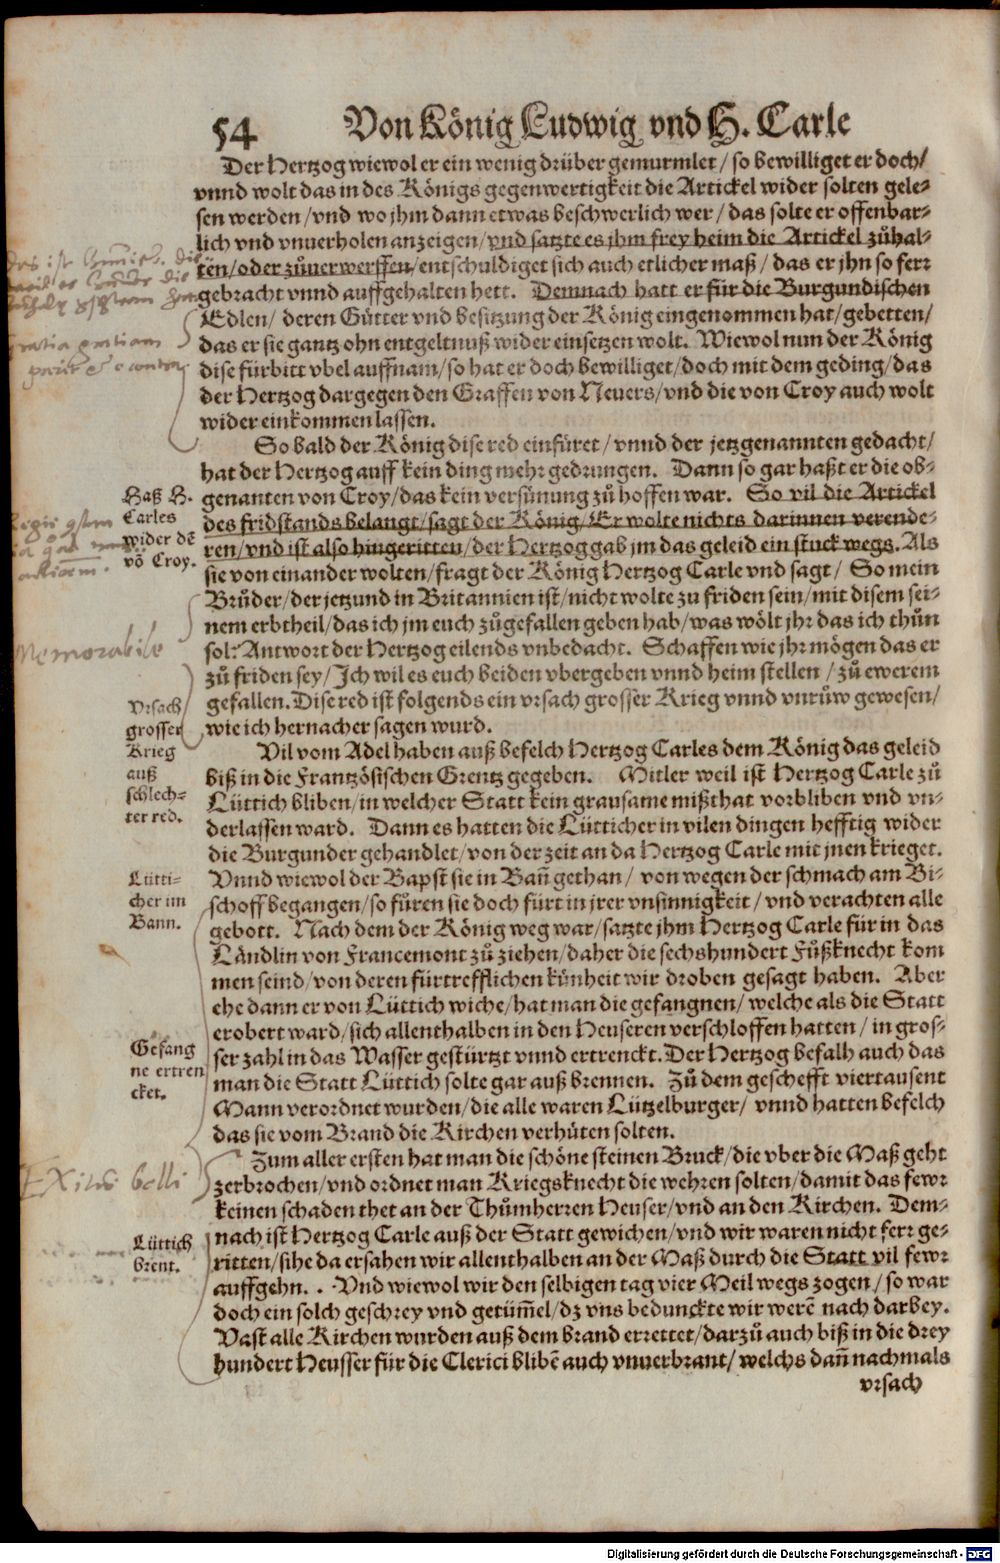 54 Von König Ludwig vnd H. Carle
Der Hertzog wiewol er ein wenig drüber gemurmlet / so bewilliget er doch/
vnnd wolt das in des Königs gegenwertigkeit die Artickel wider solten gele-
sen werden/vnd wo jhm dann etwas beschwerlich wer / das solte er offenbar-
lich vnd vnuerholen anzeigen/vnd satzte es jhm frey heim die Artickel zůhal-
ten/oder zůuerwerffen/entschuldiget sich auch etlicher maß / das er jhn so ferr
gebracht vnnd auffgehalten hett. Demnach hatt er für die Burgundischen
Edlen/ deren Gůtter vnd besitzung der König eingenommen hat/gebetten/
das er sie gantz ohn entgeltnuß wider einsetzen wolt. Wiewol nun der König
dise fürbitt vbel auffnam/so hat er doch bewilliget/doch mit dem geding/das
der Hertzog dargegen den Graffen von Nevers/vnd die von Croy auch wolt
wider einkommen lassen.
So bald der König dise red einfüret / vnnd der jetzgenannten gedacht/
hat der Hertzog auff kein ding mehr gedrungen. Dann so gar haßt er die ob-
Haß H.
Carles
wider dē
vō Croy.
genanten von Croy/das kein versůnung zů hoffen war. So vil die Artickel
des fridstands belangt/sagt der König/Er wolte nichts darinnen verende-
ren/vnd ist also hingeritten/der Hertzog gab jm das geleid ein stuck wegs. Als
sie von einander wolten/fragt der König Hertzog Carle vnd sagt / So mein
Brůder/der jetzund in Britannien ist/nicht wolte zu friden sein/mit disem sei-
nem erbtheil/das ich jm euch zůgefallen geben hab/was wölt jhr das ich thůn
Memorabile
sol? Antwort der Hertzog eilends vnbedacht. Schaffen wie jhr mögen das er
zů friden sey/Ich wil es euch beiden vbergeben vnnd heim stellen / zů ewerem
Vrsach
grosser
Krieg
auß
schlech-
ter red.
gefallen. Dise red ist folgends ein vrsach grosser Krieg vnnd vnrůw gewesen/
wie ich hernacher sagen wurd.
Vil vom Adel haben auß befelch Hertzog Carles dem König das geleid
biß in die Frantzösischen Grentz gegeben. Mitler weil ist Hertzog Carle zů
Lüttich bliben/in welcher Statt kein grausame mißthat vorbliben vnd vn-
derlassen ward. Dann es hatten die Lütticher in vilen dingen hefftig wider
die Burgunder gehandlet/von der zeit an da Hertzog Carle mit jnen krieget.
Lütti-
cher im
Bann.
Vnnd wiewol der Bapst sie in Bañ gethan / von wegen der schmach am Bi-
schoff begangen/so fůren sie doch fürt in jrer vnsinnigkeit / vnd verachten alle
gebott. Nach dem der König weg war/satzte jhm Hertzog Carle für in das
Ländlin von Francemont zů ziehen/daher die sechshundert Fůßknecht kom
men seind/von deren fürtrefflichen künheit wir droben gesagt haben. Aber
ehe dann er von Lüttich wiche/hat man die gefangnen/ welche als die Statt
erobert ward/sich allenthalben in den Heuseren verschloffen hatten / in gros-
Gefang
ne ertren
cket.
ser zahl in das Wasser gestürtzt vnnd ertrenckt. Der Hertzog befalh auch das
man die Statt Lüttich solte gar auß brennen. Zů dem geschefft viertausent
Mann verordnet wurden/die alle waren Lützelburger/ vnnd hatten befelch
das sie vom Brand die Kirchen verhüten solten.
Exitus belli
Zum aller ersten hat man die schöne steinen Bruck/die vber die Maß geht
zerbrochen/vnd ordnet man Kriegsknecht die wehren solten/damit das fewr
keinen schaden thet an der Thůmherren Heuser/vnd an den Kirchen. Dem-
Lüttich
brent.
nach ist Hertzog Carle auß der Statt gewichen/vnd wir waren nicht ferr ge-
ritten/sihe da ersahen wir allenthalben an der Maß durch die Statt vil fewr
auffgehn. . Vnd wiewol wir den selbigen tag vier Meil wegs zogen/ so war
doch ein solch geschrey vnd getüm̃el/dz vns bedunckte wir werē nach darbey.
Vast alle Kirchen wurden auß dem brand errettet/darzů auch biß in die drey
hundert Heusser für die Clerici blibē auch vnuerbrant/ welchs dañ nachmals
vrsach
Digitalisierung gefördert durch die Deutsche Forschungsgemeinschaft - DFG